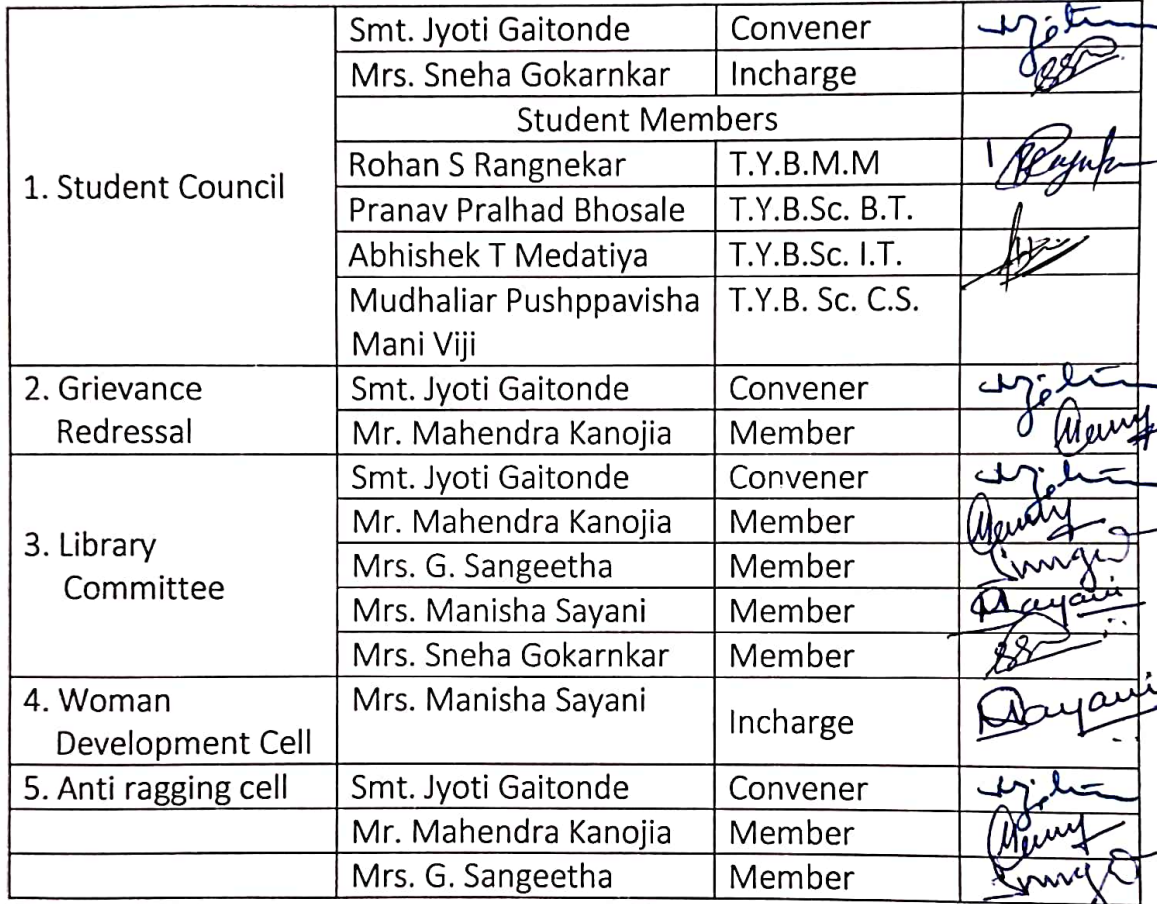 Smt. Jyoti Gaitonde Convener
Mrs. Sneha Gokarnkar Incharge
Student Members
1. Student Council
Rohan S Rangnekar T.Y.B.M.M
Pranav Pralhad Bhosale T.Y.B.Sc. B.T.
Abhishek T Medatiya T.Y.B.Sc. I.T.
Mudhaliar Pushppavisha T.Y.B. Sc. C.S.
Mani Viji
2. Grievance Smt. Jyoti Gaitonde Convener
Redressal Mr. Mahendra Kanojia Member
3. Library
Committee
Smt. Jyoti Gaitonde Convener
Mr. Mahendra Kanojia Member
Mrs. G. Sangeetha Member
Mrs. Manisha Sayani Member
Mrs. Sneha Gokarnkar Member
4. Woman Mrs. Manisha Sayani Incharge
Development Cell
5. Anti ragging cell Smt. Jyoti Gaitonde Convener
Mr. Mahendra Kanojia Member
Mrs. G. Sangeetha Member